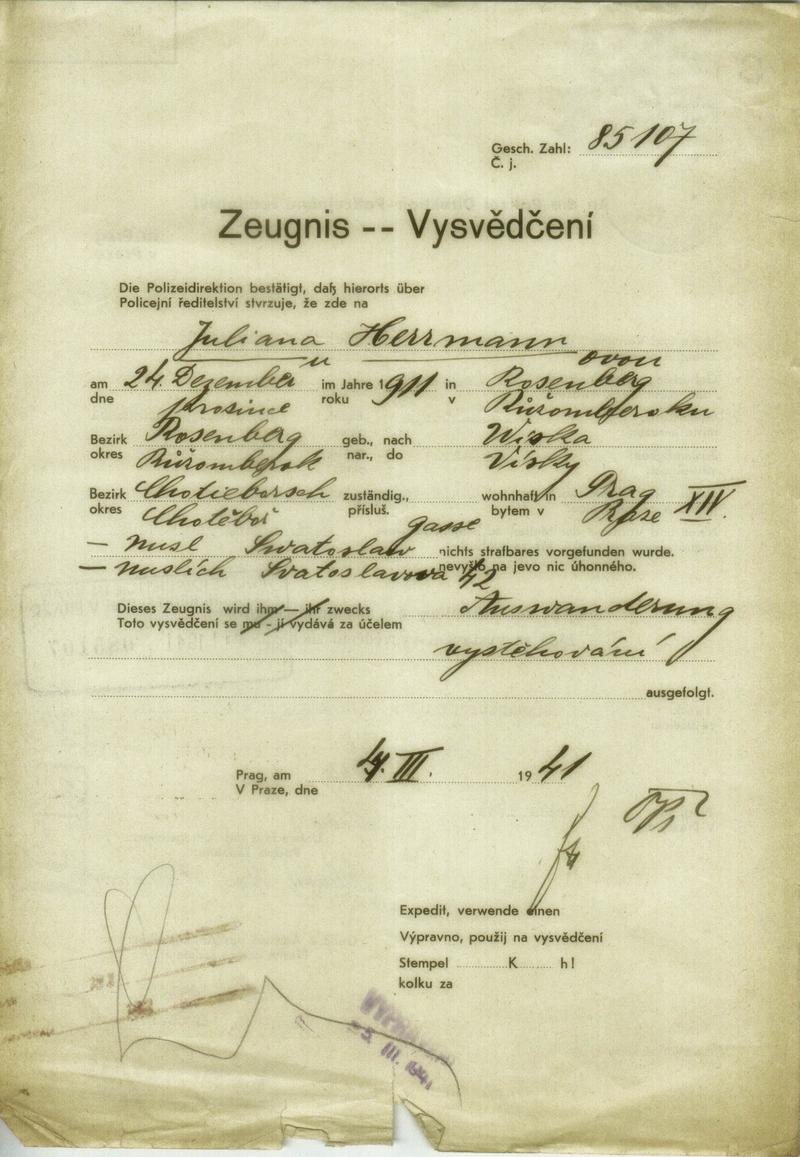 Gesch. Zahl: 85107
Č. j.
Zeugnis -- Vysvědčení
Die Polizeidirektion bestätigt, daß hierorts über
Policejní ředitelství stvrzuje, že zde na
Juliana Herrmann
u ovou
am 24. Dezember im Jahre 1911 in Rosenberg
dne prosince roku v Růžomberoku
Bezirk Rosenberg geb., nach Wiska
okres Růžomberok nar., do Vísky
Bezirk Chotieborsch zuständig., wohnhaft in Prag XIV.
okres Chotěboř přísluš. bytem v Praze
gasse
– Nusl Swatoslaw nichts strafbares vorgefunden wurde.
– Nuslích Svatoslavova 42 nevyšlo na jevo nic úhonného.
Dieses Zeugnis wird ihm — ihr zwecks Auswanderung
Toto vysvědčení se mu - jí vydává za účelem
vystěhování
ausgefolgt.
Prag, am 4. III. 1941
V Praze, dne
Expedit, verwende einen
Výpravno, použij na vysvědčení
Stempel K h!
kolku za
5. III. 1941